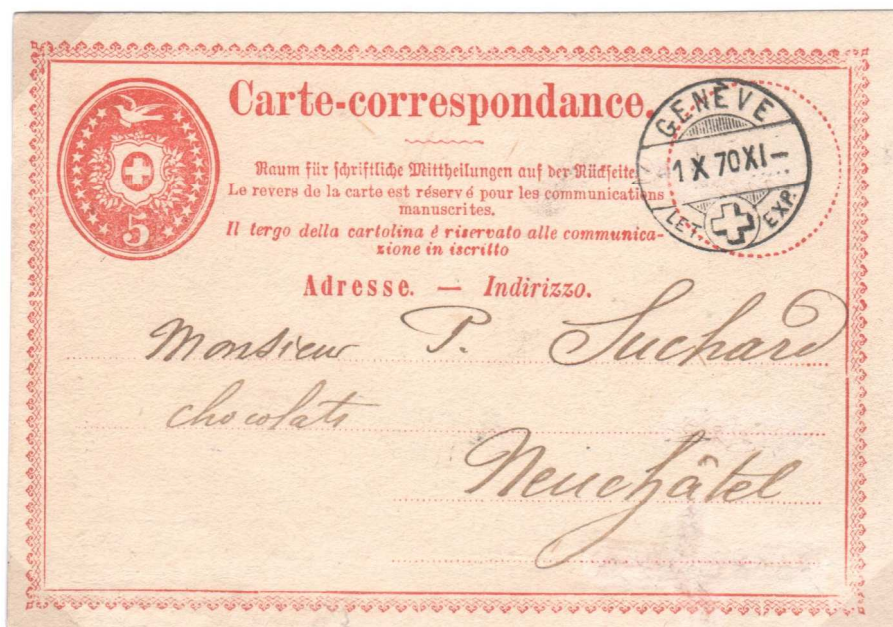 Carte-correspondance.
Raum für schriftliche Mittheilungen auf der Rückseite.
Le revers de la carte est réservé pour les communications
manuscrites.
Il tergo della cartolina é riservato alle communica-
zione in iscritto
Adresse. — Indirizzo.
5
GENÈVE
1 X 70 XI—
LET. EXP.
Monsieur P. Suchard
chocolats
Neuchâtel